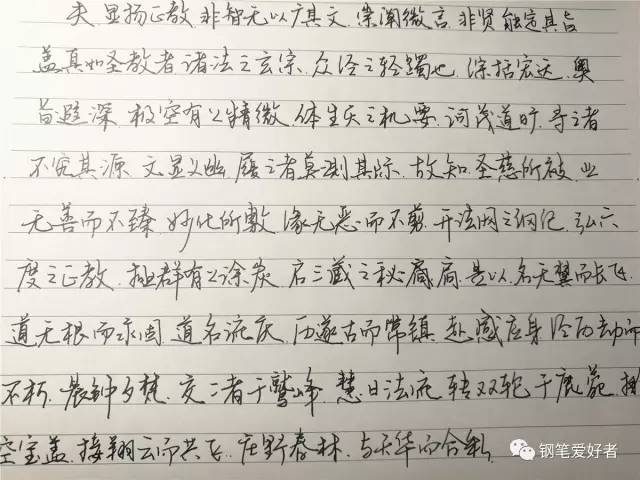 夫显扬正教非智无以广其文崇阐微言非贤能定其旨
盖真如圣教者诸法之玄宗众经之轻躅也综括宏远奥
旨遐深极空有之精微体生灭之机要词茂道旷寻之者
不究其源文显义幽履之者莫测其际故知圣慈所被业
无善而不臻妙化所敷缘无恶而不剪开法网之纲纪弘六
度之正教拯群有之涂炭启三藏之秘扃是以名无翼而长飞
道无根而永固道名流庆历遂古而常镇赴感应身经历劫而
不朽晨钟夕梵交二音于鹫峰慧日法流转双轮于鹿苑排
空宝盖接翔云而共飞庄野春林与天华而合彩
钢笔爱好者